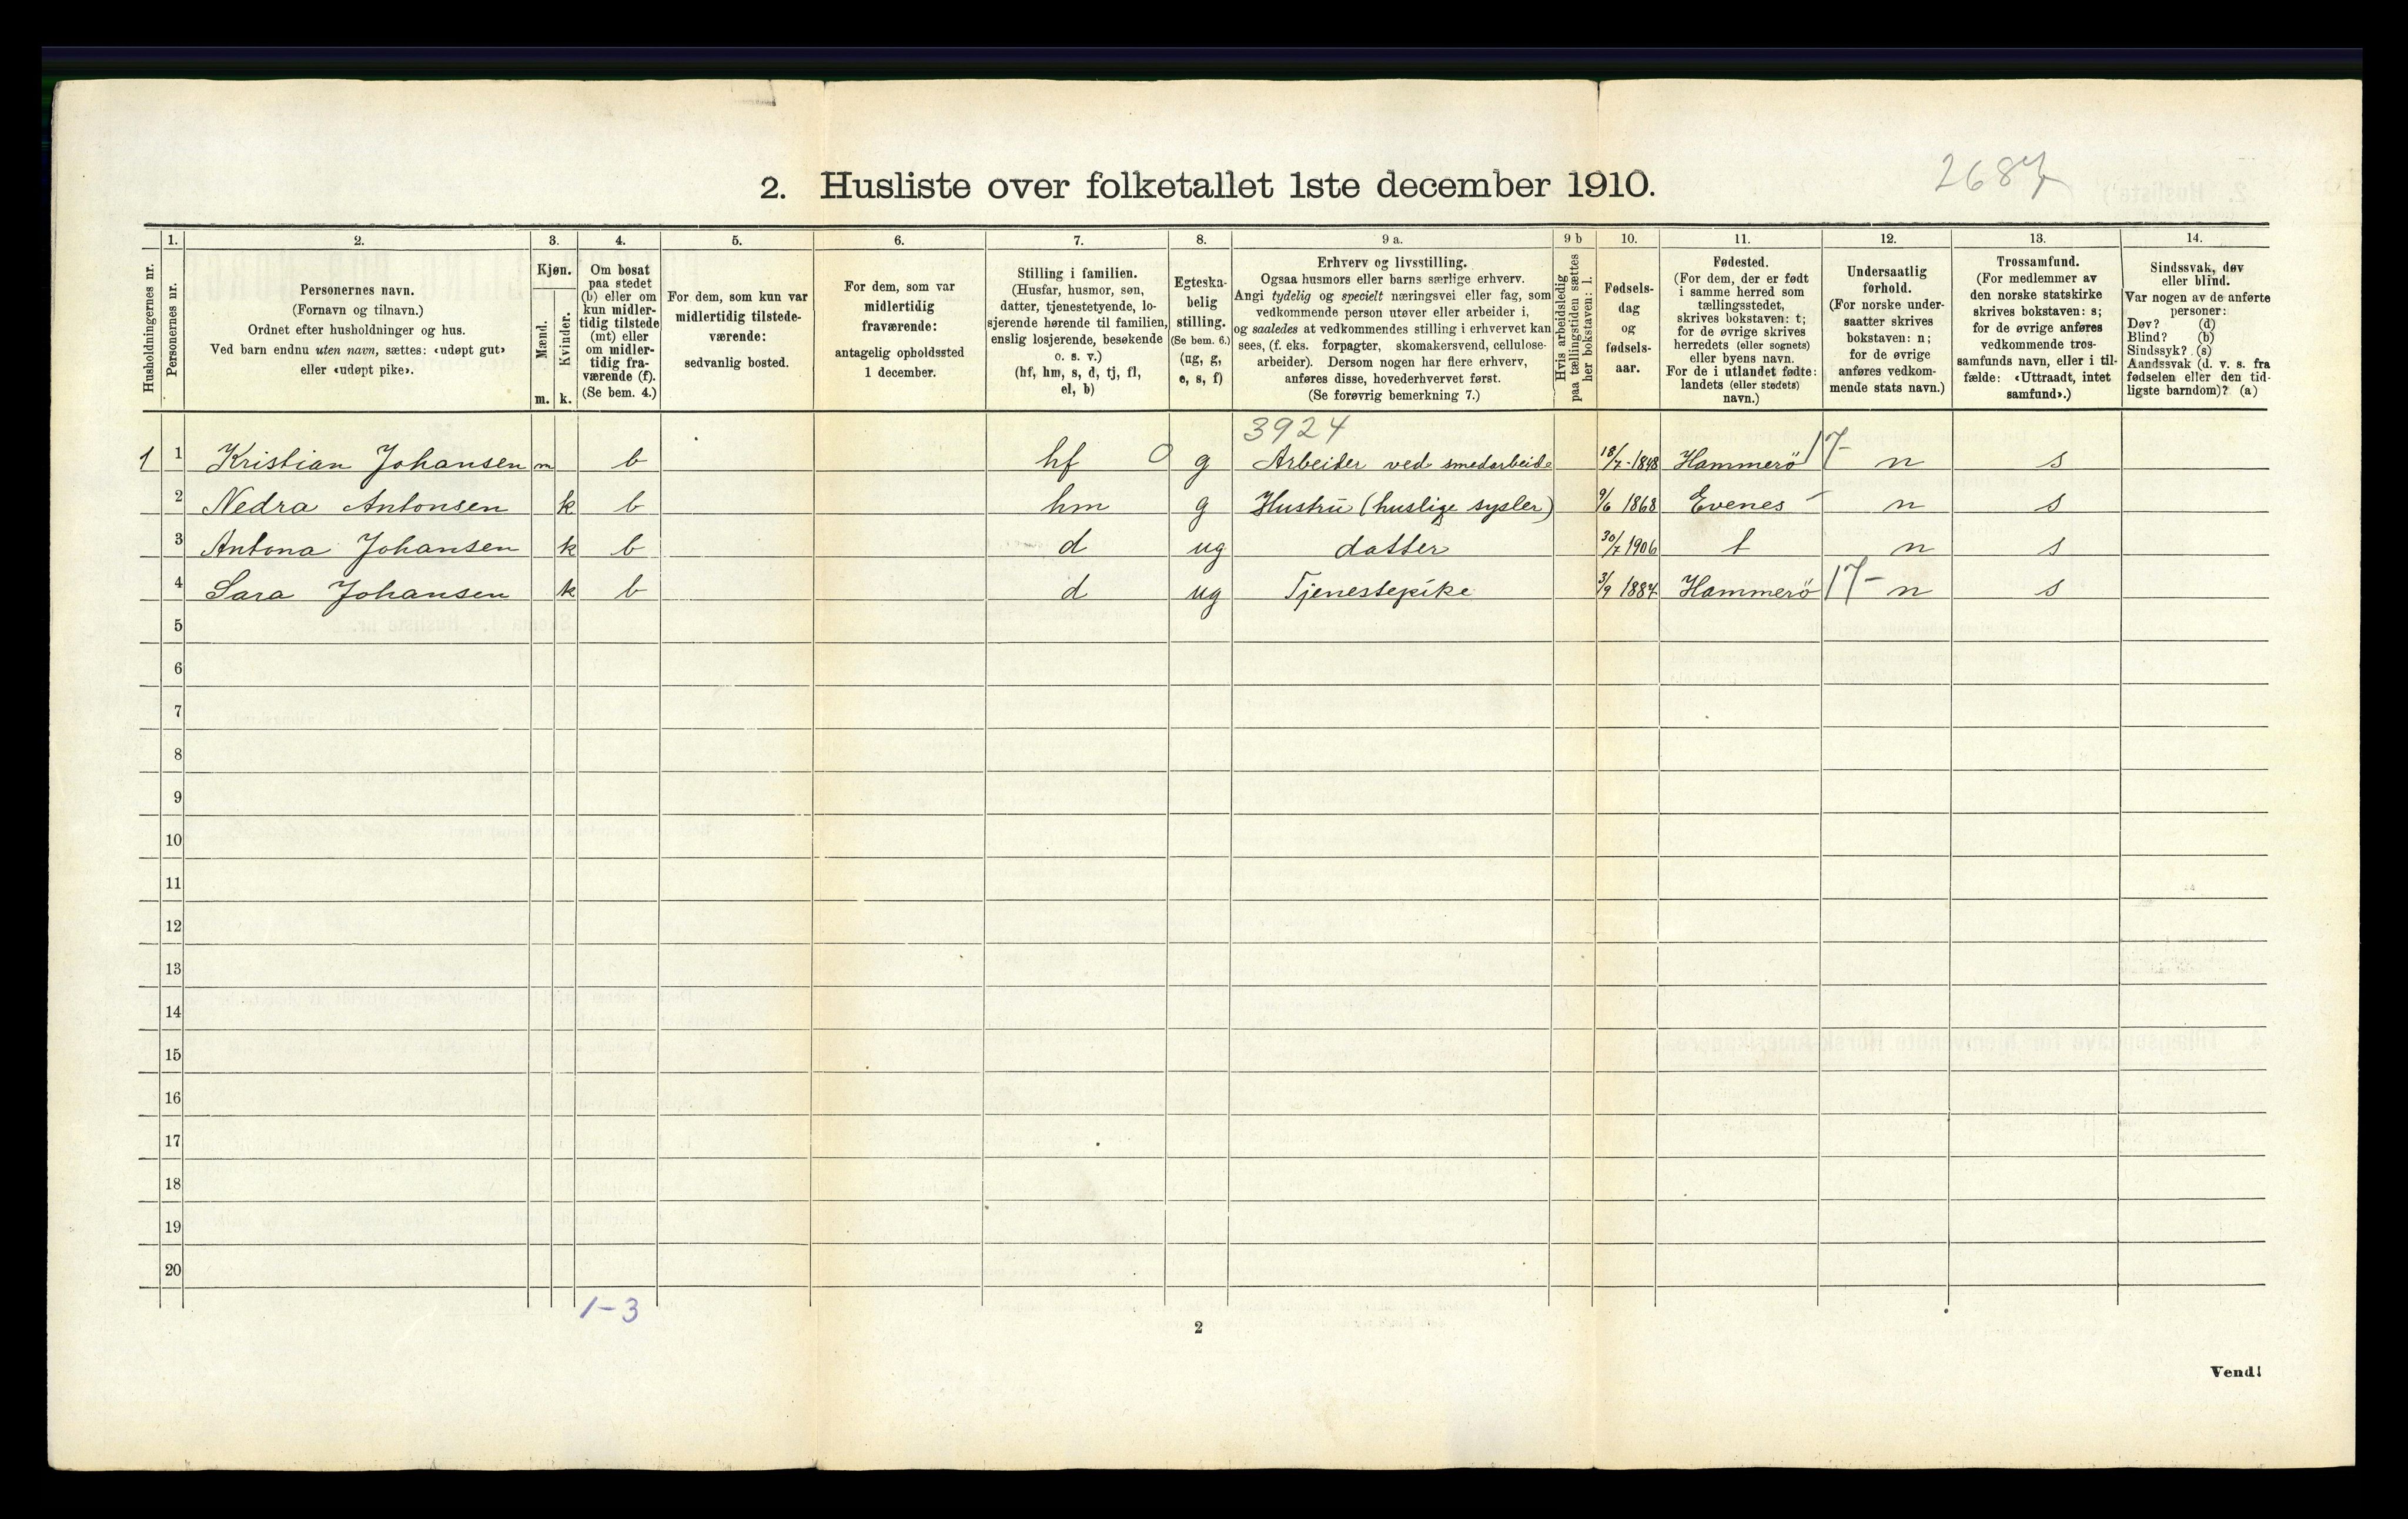 2. Husliste over folketallet 1ste december 1910.
2687
Husholdningernes nr.
1.
Personernes nr.
2.
Personernes navn.
(Fornavn og tilnavn.)
Ordnet efter husholdninger og hus.
Ved barn endnu uten navn, sættes: «udøpt gut»
eller «udøpt pike».
3.
Kjøn.
Mænd.
Kvinder.
m. k.
4.
Om bosat
paa stedet
(b) eller om
kun midler-
tidig tilstede
(mt) eller
om midler-
tidig fra-
værende (f).
(Se bem. 4.)
5.
For dem, som kun var
midlertidig tilstede-
værende:
sedvanlig bosted.
6.
For dem, som var
midlertidig
fraværende:
antagelig opholdssted
1 december.
7.
Stilling i familien.
(Husfar, husmor, søn,
datter, tjenestetyende, lo-
sjerende hørende til familien,
enslig losjerende, besøkende
o. s. v.)
(hf, hm, s, d, tj, fl,
el, b)
8.
Egteska-
belig
stilling.
(Se bem. 6.)
(ug, g,
e, s, f)
9 a.
Erhverv og livsstilling.
Ogsaa husmors eller barns særlige erhverv.
Angi tydelig og specielt næringsvei eller fag, som
vedkommende person utøver eller arbeider i,
og saaledes at vedkommendes stilling i erhvervet kan
sees, (f. eks. forpagter, skomakersvend, cellulose-
arbeider). Dersom nogen har flere erhverv,
anføres disse, hovederhvervet først.
(Se forøvrig bemerkning 7.)
9 b
Hvis arbeidsledig
paa tællingstiden sættes
her bokstaven: l.
10.
Fødsels-
dag
og
fødsels-
aar.
11.
Fødested.
(For dem, der er født
i samme herred som
tællingsstedet,
skrives bokstaven: t;
for de øvrige skrives
herredets (eller sognets)
eller byens navn.
For de i utlandet fødte:
landets (eller stedets)
navn.)
12.
Undersaatlig
forhold.
(For norske under-
saatter skrives
bokstaven: n;
for de øvrige
anføres vedkom-
mende stats navn.)
13.
Trossamfund.
(For medlemmer av
den norske statskirke
skrives bokstaven: s;
for de øvrige anføres
vedkommende tros-
samfunds navn, eller i til-
fælde: «Uttraadt, intet
samfund».)
14.
Sindssvak, døv
eller blind.
Var nogen av de anførte
personer:
Døv? (d)
Blind? (b)
Sindssyk? (s)
Aandssvak (d. v. s. fra
fødselen eller den tid-
ligste barndom)? (a)
3924
1 1 Kristian Johansen m b hf 0 g Arbeider ved smedarbeide 18/7-1848 Hammerö 17- n s
2 Nedra Antonsen k b hm g Hustru (huslige sysler) 9/6 1868 Evenes - n s
3 Antona Johansen k b d ug datter 30/7 1906 t n s
4 Sara Johansen k b d ug Tjenestepike 3/9 1887 Hammerö 17- n s
5
6
7
8
9
10
11
12
13
14
15
16
17
18
19
20
1-3
2
Vend!